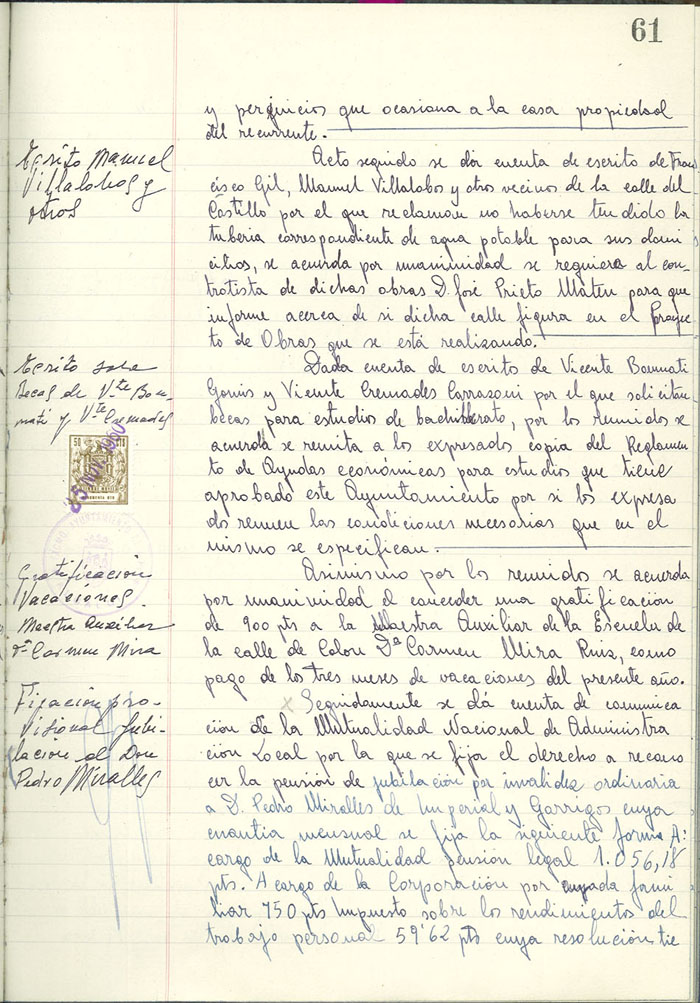 61
y perjuicios que ocasiona a la casa propiedad
del recurrente.
Escrito Manuel
Villalobos y
otros
Acto seguido se dá cuenta de escrito de Fran
cisco Gil, Manuel Villalobos y otros vecinos de la calle del
Castillo por el que reclaman no haberse tendido la
tuberia correspondiente de agua potable para sus domi
cilios, se acuerda por unanimidad se requiera al con
tratista de dichas obras D. José Prieto Mateu para que
informe acerca de si dicha calle figura en el Proyec
to de Obras que se está realizando.
Escrito sobre
Becas de Vte Bon-
matí y Vte Cremades
Dada cuenta de escrito de Vicente Bonmati
Gomis y Vicente Cremades Carrazoni por el que solicitan
becas para estudios de bachillerato, por los reunidos se
acuerda se remita a los expresados copia del Reglamen
to de Ayudas económicas para estudios que tiene
aprobado este Ayuntamiento por si los expresa
dos reunen las condiciones necesarias que en el
mismo se especifican.
50 CTS
25 NOV. 1960
Gratificación
Vacaciones.
Maestra Auxiliar
Dª Carmen Mira
Asimismo por los reunidos se acuerda
por unanimidad el conceder una gratificación
de 900 pts a la Maestra Auxiliar de la Escuela de
la calle de Colon Dª Carmen Mira Ruiz, como
pago de los tres meses de vacaciones del presente año.
Figacion pro-
visional Jubi-
lacion de Don
Pedro Miralles
x Seguidamente se dá cuenta de comunica
ción de la Mutualidad Nacional de Administra
ción Local por la que se fija el derecho a recono
cer la pensión de jubilación por invalidez ordinaria
a D. Pedro Miralles de Imperial y Garrigos cuya
cuantia mensual se fija la siguiente forma A:
cargo de la Mutualidad pensión legal 1.056,18
pts. A cargo de la Corporación por ayuda fami
liar 750 pts Impuesto sobre los rendimientos del
trabajo personal 59'62 pts cuya resolución tie